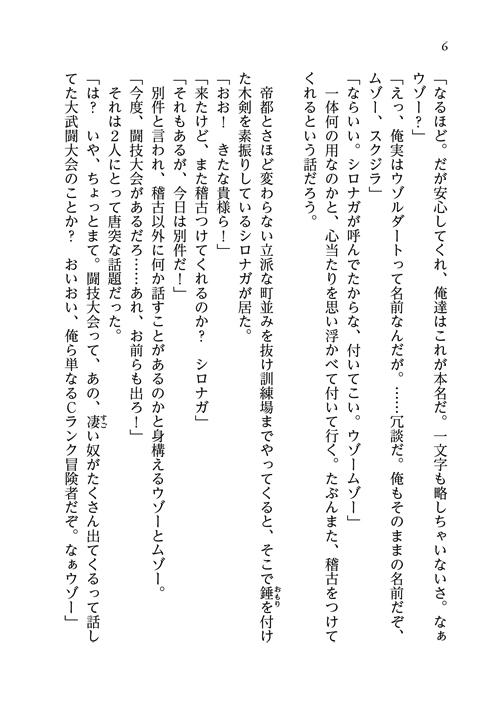 6
「なるほど。だが安心してくれ、俺達はこれが本名だ。一文字も略しちゃいないさ。なぁ
ウゾー？」
「えっ、俺実はウゾルダートって名前なんだが。……冗談だ。俺もそのままの名前だぞ、
ムゾー、スクジラ」
「ならいい。シロナガが呼んでたからな、付いてこい。ウゾームゾー」
一体何の用なのかと、心当たりを思い浮かべて付いて行く。たぶんまた、稽古をつけて
くれるという話だろう。
帝都とさほど変わらない立派な町並みを抜け訓練場までやってくると、そこで錘を付け
おもり
た木剣を素振りしているシロナガが居た。
「おお！　きたな貴様ら！」
「来たけど、また稽古つけてくれるのか？　シロナガ」
「それもあるが、今日は別件だ！」
別件と言われ、稽古以外に何か話すことがあるのかと身構えるウゾーとムゾー。
「今度、闘技大会があるだろ……あれ、お前らも出ろ！」
それは２人にとって唐突な話題だった。
「は？　いや、ちょっとまて。闘技大会って、あの、凄い奴がたくさん出てくるって話し
すご
てた大武闘大会のことか？　おいおい、俺ら単なるCランク冒険者だぞ。なぁウゾー」